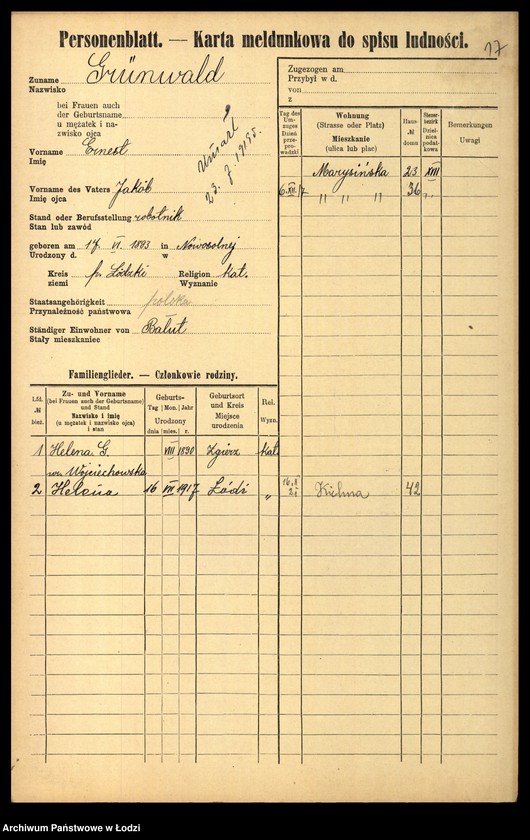 Personenblatt. — Karta meldunkowa do spisu ludności.
17
Zuname Grünwald
Nazwisko
bei Frauen auch
der Geburtsname
u mężatek i na-
zwisko ojca
Vorname Ernest
Imię
umarł
Vorname des Vaters Jakób
Imię ojca
Stand oder Berufsstellung robotnik
Stan lub zawód
geboren am 17 VI. 1893 in Nowosolnej
Urodzony d. w
Kreis p. Łódzki Religion kat.
ziemi Wyznanie
Staatsangehörigkeit polska
Przynależność państwowa
Ständiger Einwohner von Bałut
Stały mieszkaniec
Zugezogen am
Przybył w d.
von
z
Tag des Um-
zuges
Dzień
prze-
prowadzki
Wohnung
(Strasse oder Platz)
Mieszkanie
(ulica lub plac)
Haus-
№
domu
Steuer-
bezirk
Dziel-
nica
podat-
kowa
Bemerkungen
Uwagi
Marysińska 23 XIII
6 XII 17 " " " 36 "
Familienglieder. — Członkowie rodziny.
Lfd.
№
bież.
Zu- und Vorname
(bei Frauen auch der Geburtsname)
und Stand
Nazwisko i imię
(u mężatek i nazwisko ojca)
i stan
Geburts-
Tag Mon. Jahr
Urodzony
dnia mies. r.
Geburtsort
und Kreis
Miejsce
urodzenia
Rel.
Wyzn.
1 Helena G. VIII 1890 Zgierz kat.
Wojciechowska
2 Helena 16 VII 1917 Łódź " Kielma 42
Archiwum Państwowe w Łodzi